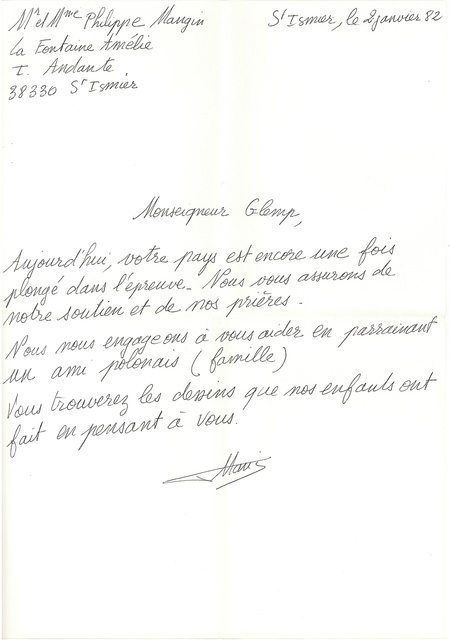 Mr et Mme Philippe Mangin
St Ismier, le 2 janvier 82
la Fontaine Amélie
I. Andante
38330 St Ismier
Monseigneur Glemp,
Aujourd'hui, votre pays est encore une fois
plongé dans l'épreuve. Nous vous assurons de
notre soutien et de nos prières.
Nous nous engageons à vous aider en parrainant
un ami polonais (famille)
Vous trouverez les dessins que nos enfants ont
fait en pensant à vous.